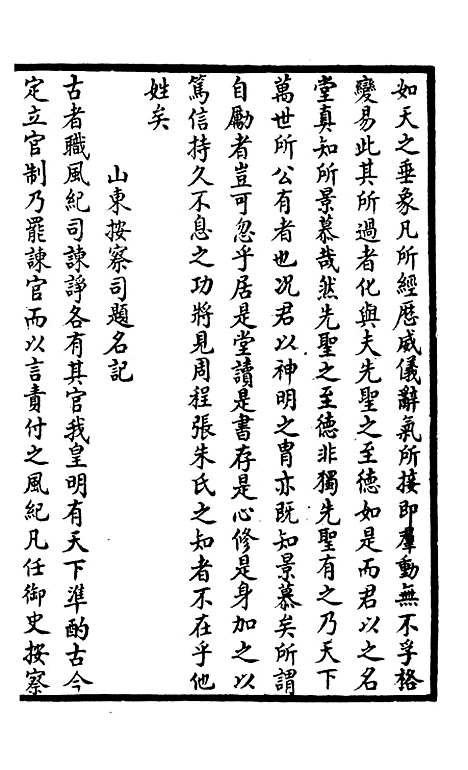 如天之垂象凡所經歷威儀辭氣所接即羣動無不孚格
變易此其所過者化與夫先聖之至德如是而君以之名
堂真知所景慕哉然先聖之至德非獨先聖有之乃天下
萬世所公有者也况君以神明之胄亦既知景慕矣所謂
自勵者豈可忽乎居是堂讀是書存是心修是身加之以
篤信持久不息之功將見周程張朱氏之知者不在乎他
姓矣
山東按察司題名記
古者職風紀司諫諍各有其官我皇明有天下準酌古今
定立官制乃罷諫官而以言責付之風紀凡任御史按察